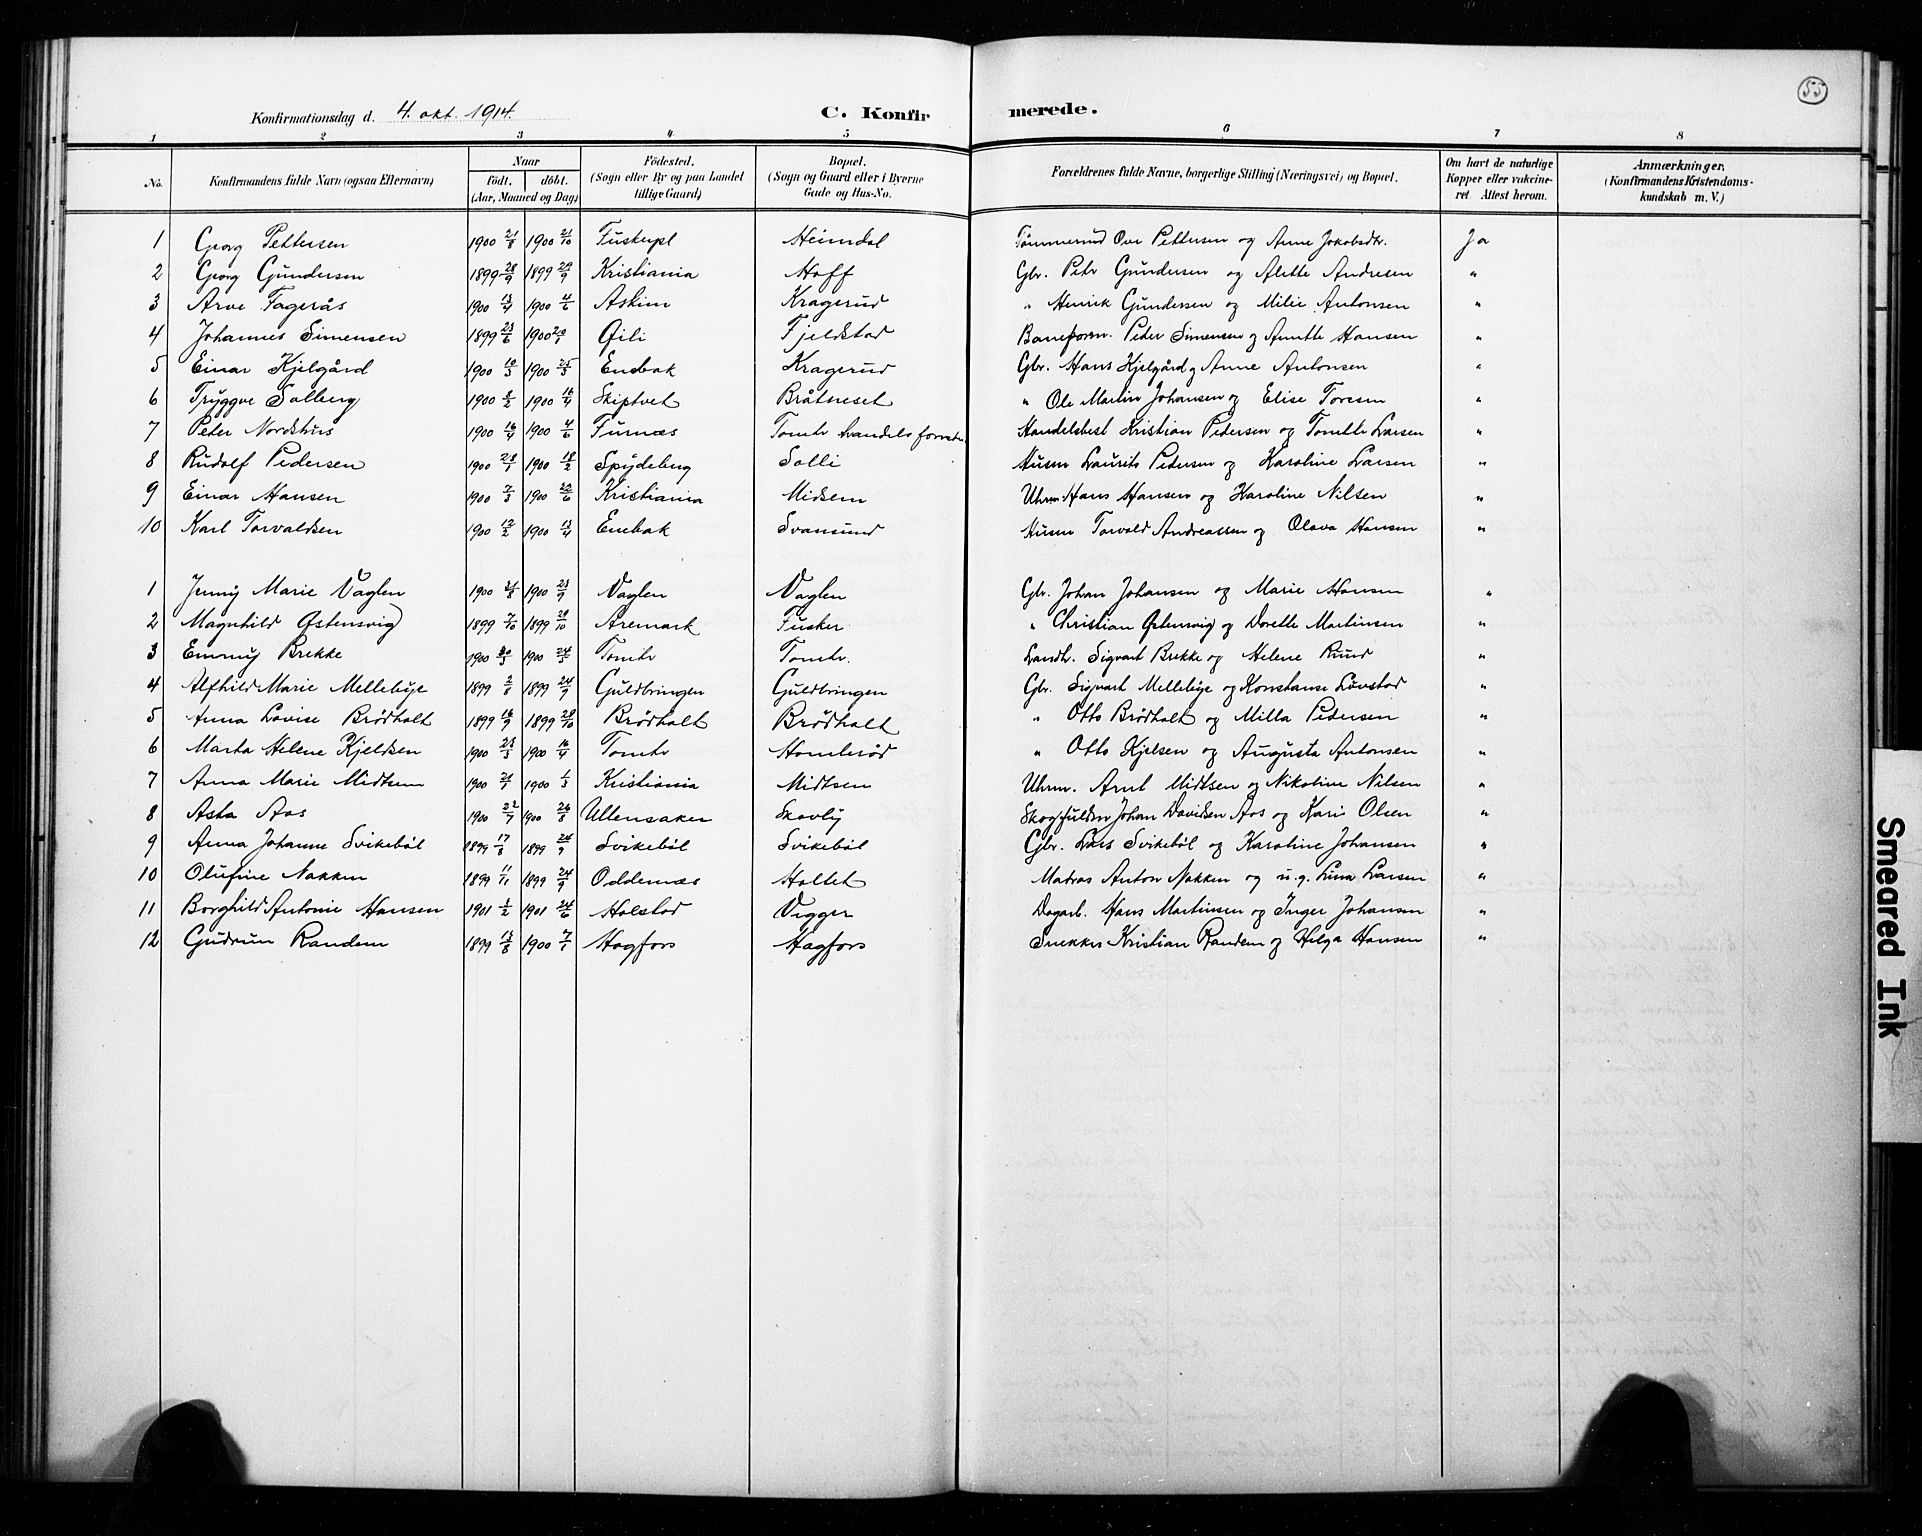 55
Konfirmationsdag d. 4. okt. 1914. C. Konfir merede.
1 2 3 4 5 6 7 8
No. Konfirmandens fulde Navn (ogsaa Efternavn) Naar födt. döbt. (Aar, Maaned og Dag) Födested. (Sogn eller By og paa Landet tillige Gaard) Bopæl. (Sogn og Gaard eller i Byerne Gade og Hus-No. Forældrenes fulde Navne, borgerlige Stilling (Næringsvei) og Bopæl. Om havt de naturlige Kopper eller vakcineret. Attest herom. Anmærkninger. (Konfirmandens Kristendomskundskab m. V.)
1 Georg Pettersen 1900 21/8 1900 21/10 Heimdal Tømmermd Ove Pettersen og Anne Jakobsdtr. Ja
2 Georg Gundersen 1899 28/9 1899 29/9 Kristiania Hoff Gbr. Petr Gundersen og Alette Andresen "
3 Arve Fagerås 1900 13/4 1900 4/6 Askim Kragerud " Henrik Gundersen og Milie Antonsen "
4 Johannes Simensen 1899 23/6 1900 Gili Fjeldstad Baneform. Peder Simensen og Anette Hansen "
5 Einar Kjelgård 1900 10/3 1900 25/5 Enebak Kragerud Gbr. Hans Kjelgård og Anne Antonsen "
6 Tryggve Solberg 1900 8/2 1900 16/4 Skiptvet Bråtneset " Ole Martin Johansen og Elise Toresen "
7 Peter Nordshus 1900 16/4 1900 4/6 Furnæs Tomtr handelsforretn. Handelsbest Kristian Pedersen og Tomtle Larsen "
8 Rudolf Pedersen 1900 28/1 1900 18/2 Spydeberg Solli Husm Laurits Pedersen og Karoline Larsen "
9 Einar Hansen 1900 7/3 1900 22/6 Kristiania Midsem Uhrm Hans Hansen og Karoline Nilsen "
10 Karl Torvaldsen 1900 12/2 1900 13/4 Enebak Svansund Husm Torvald Andreassen og Olava Hansen "
1 Jenny Marie Vaglen 1900 31/8 1900 23/9 Vaglen Vaglen Gbr. Johan Johansen og Marie Hansen "
2 Magnhild Østensvig 1899 7/10 1899 29/10 Aremark Fusker " Christian Østensvig og Dorette Martinsen "
3 Emmy Brekke 1900 30/3 1900 24/5 Tomtr Tomtr. Landh. Sigvart Brekke og Helene Ruud "
4 Alfhild Marie Mellebye 1899 2/8 1899 24/9 Guldbringen Guldbringen Gbr. Sigvart Mellebye og Konstanse Løvstad "
5 Anna Lovise Brødholt 1899 16/9 1899 29/10 Brødholt Brødholt " Otto Brødholt og Milla Pedersen "
6 Marta Helene Kjeldsen 1900 23/3 1900 16/4 Tomtr Homlerød " Otto Kjelsen og Augusta Antonsen "
7 Anna Marie Midtsem 1900 21/1 1900 1/3 Kristiania Midtsem Uhrm. Arnt Midtsen og Nikoline Nilsen "
8 Asta Aas 1900 22/7 1900 26/8 Ullensaker Skovly Johan Davidsen Aas og Kari Olsen "
9 Anna Johanne Svikebøl 1899 17/8 1899 24/9 Svikebøl Svikebøl Gbr. Lars Svikebøl og Karoline Johansen "
10 Olufine Nakken 1899 11/11 1899 24/9 Oddernæs Holtet Madras Anton Nakken og u.g. Lina Larsen "
11 Borghild Antonie Hansen 1901 1/2 1901 24/6 Holstad Vigger Dagarb. Hans Martinsen og Inger Johansen "
12 Gudrun Randem 1899 13/8 1900 7/1 Hagfors Hagfors Snekker Kristian Randem og Helga Hansen "
Smeared Ink